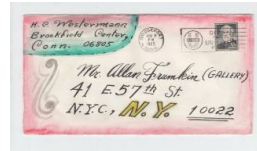 H.C. Westermann
Brookfield Center,
Conn. 06805
Mr. Allan Frumkin (GALLERY)
41 E. 57th St.
N.Y.C., N.Y. 10022